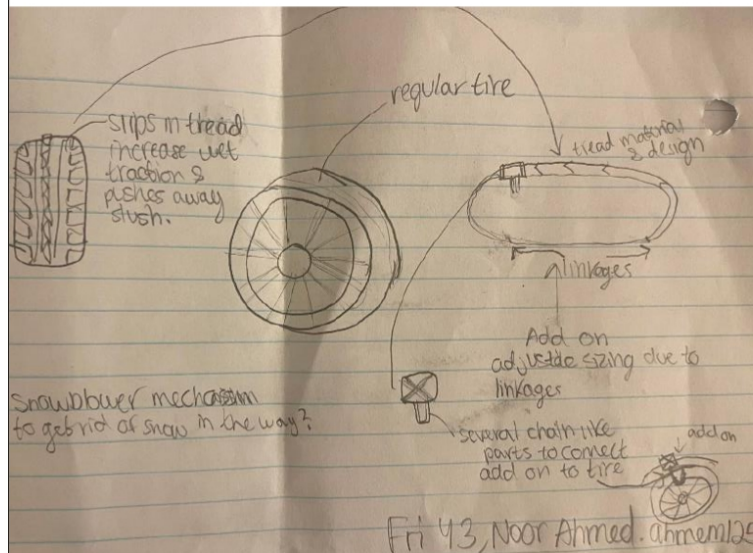 regular tire
slips in tread
increase wet
traction &
pushes away
slush.
tread material
& design
linkages
Add on
adjustable sizing due to
linkages
snowblower mechanism
to get rid of snow in the way?
several chain like
parts to connect
add on to tire
add on
Fri 43, Noor Ahmed. ahmem125